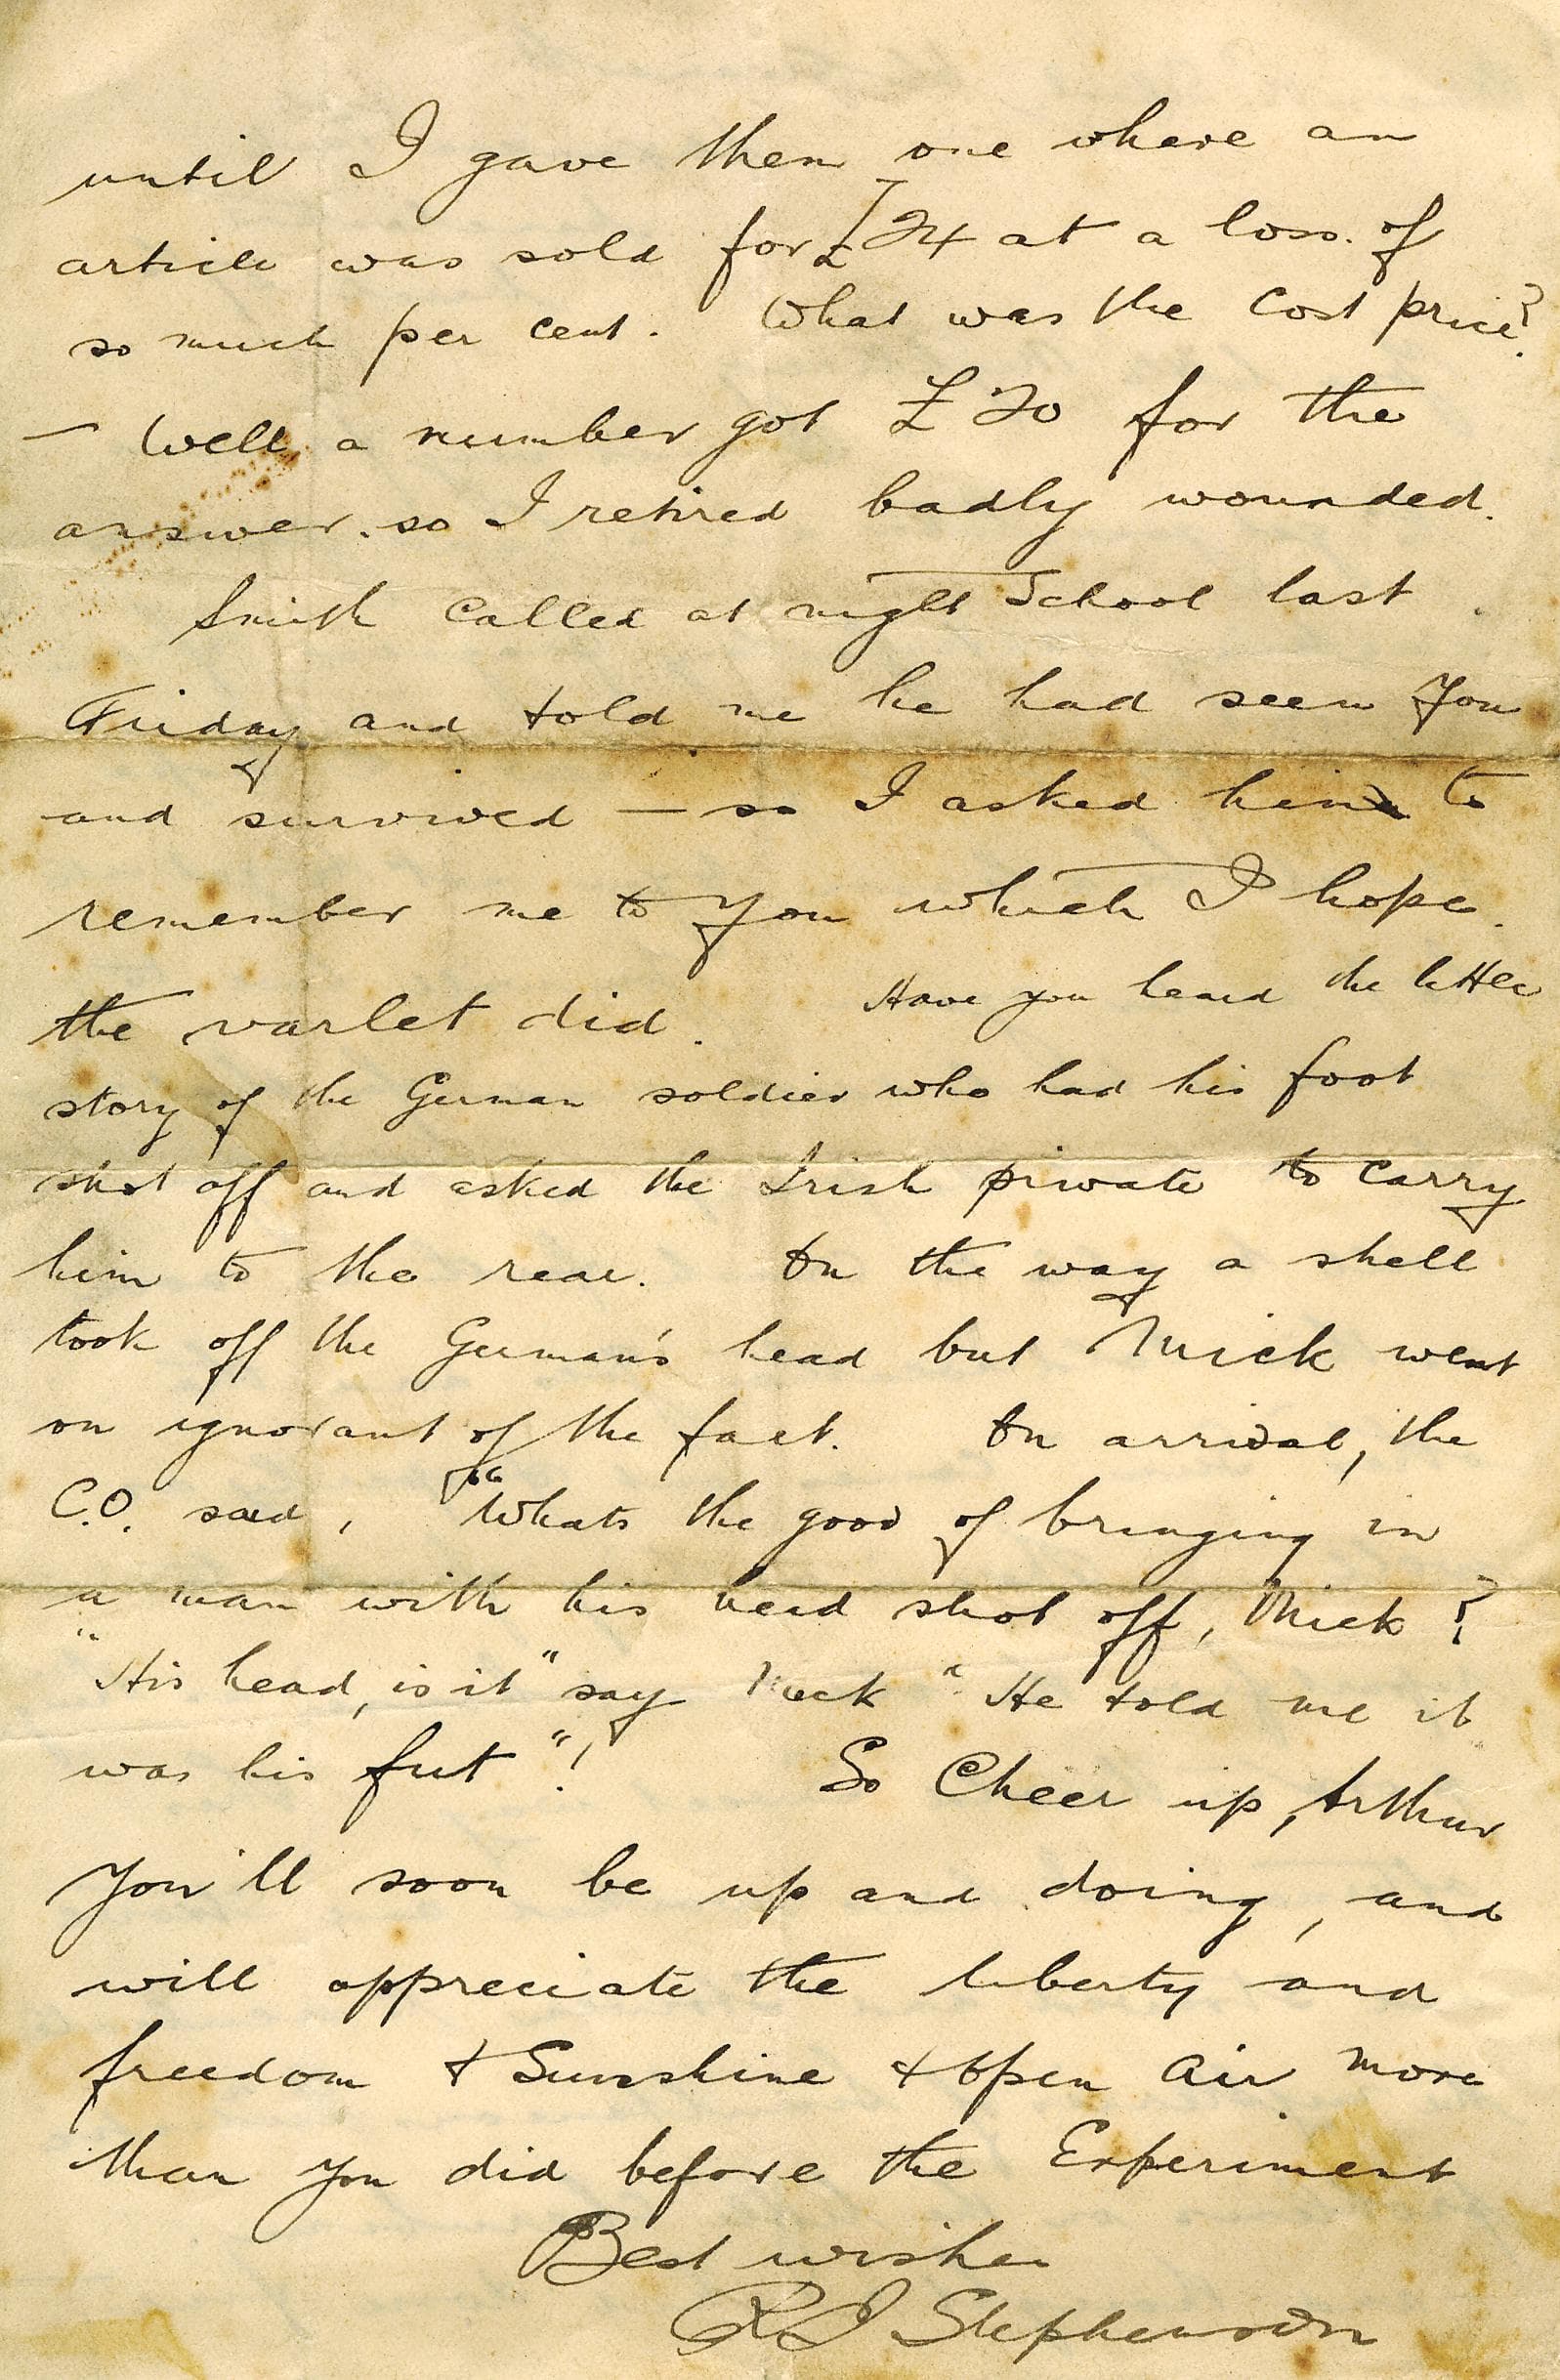 until I gave them one where an
article was sold for £24 at a loss of
so much per cent. What was the Cost price?
— Well, a number got £20 for the
answer, so I retired badly wounded.
Smith called at night School last
Friday and told me he had seen you
and survived — so I asked him to
remember me to you which I hope
the varlet did. Have you heard the little
story of the German soldier who had his foot
shot off and asked the Irish private to carry
him to the rear. On the way a shell
took off the German's head but Mick went
on ignorant of the fact. On arrival, the
C.O. said, "Whats the good of bringing in
a man with his head shot off, Mick?
"His head, is it" say Mick "He told me it
was his fut"! So Cheer up, Arthur
you'll soon be up and doing, and
will appreciate the liberty and
freedom & Sunshine & Open Air more
than you did before the Experiment
Best wishes
R J Stephenson